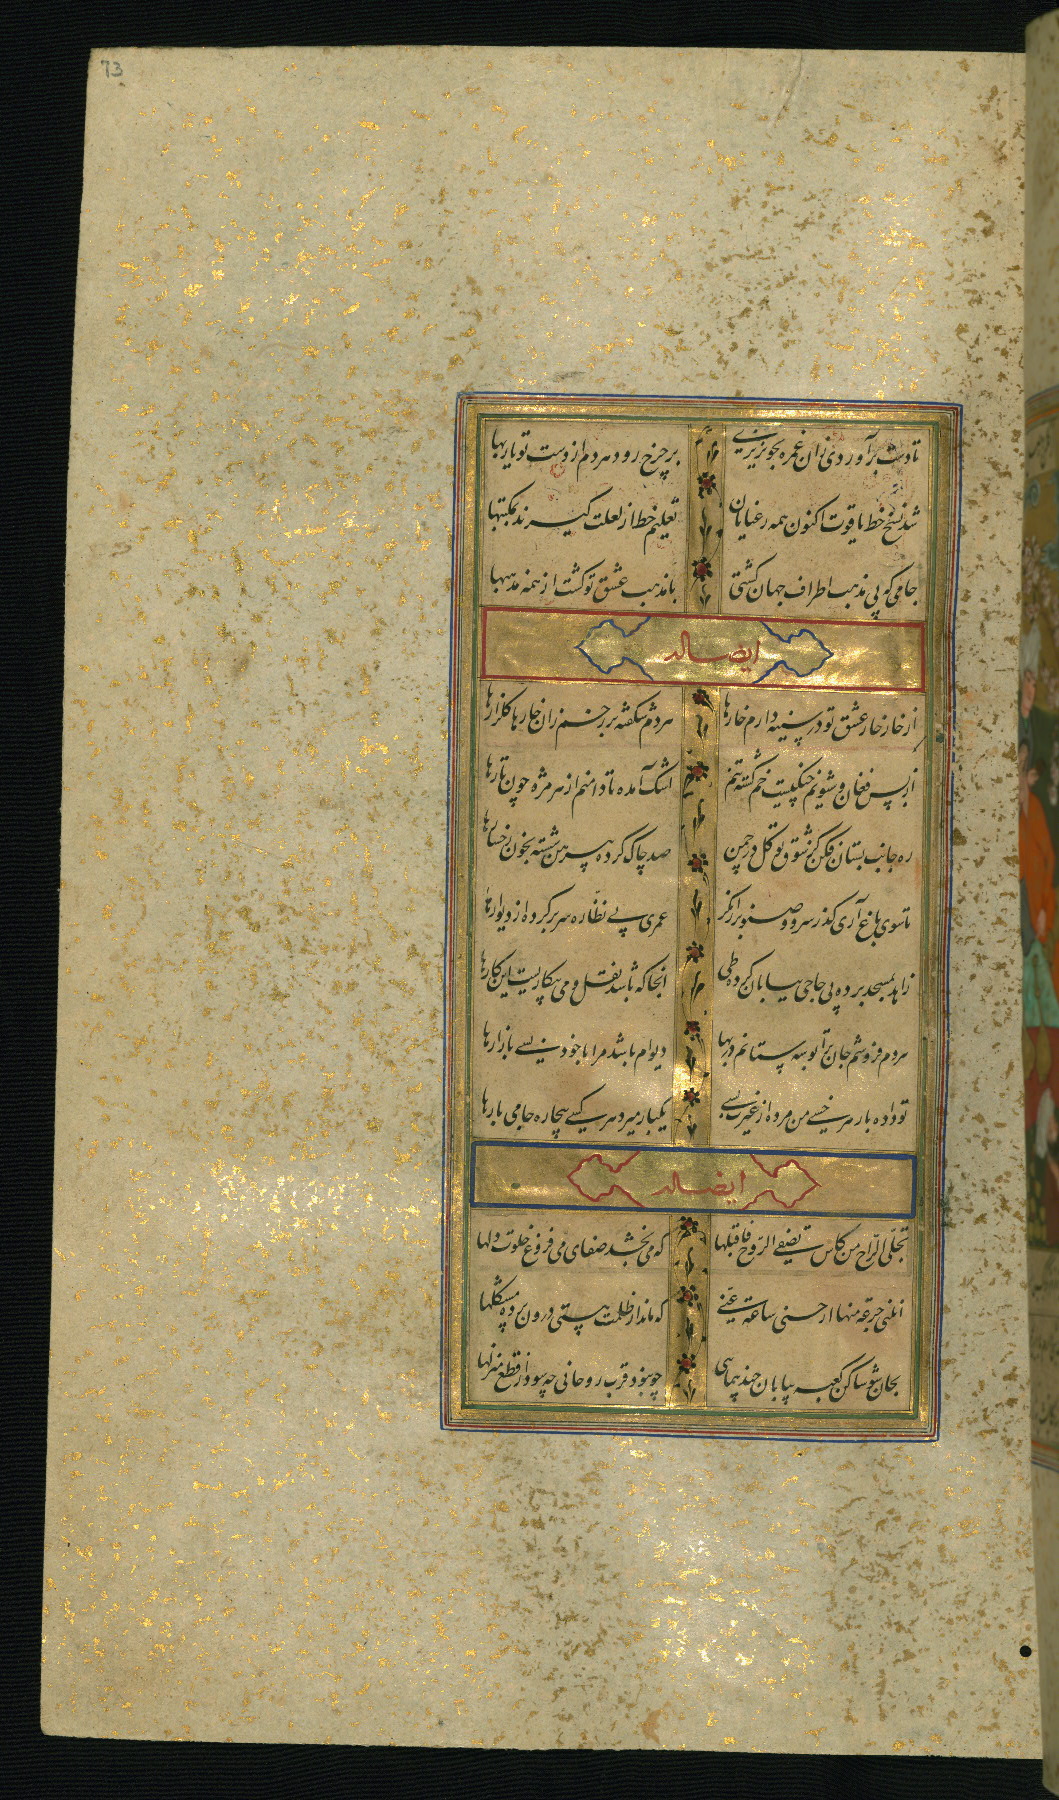 73
تا دست برآوردی زان غمزه بخونریزی
بر چرخ رود هر دم از دست تو یاربها
شد نسخ خط یاقوت اکنون همه رعنایان
تعلیم خط از لعلت گیرند بمکتبها
جامی که پی مذهب اطراف جهان گشتی
با مذهب عشق تو گشت از همه مذهبها
ایضا له
از خار خار عشق تو در سینه دارم خارها
هر دم شکفته بر رخم زان خارها گلزارها
از بس فغان و شیونم چنگیست خم گشته تنم
اشک آمده تا دامنم از هر مژه چون تارها
ره جانب بستان فکن کز شوق تو گل در چمن
صد چاک کرده پیرهن شسته بخون رخسارها
تا سوی باغ آری گذر سرو و صنوبر را نگر
عمری پی نظاره سر بر کرده از دیوارها
زاهد بمسجد برده پی حاجی بیابان کرده طی
آنجا که باشد نقل و می بیکاریست این کارها
هر دم فروشم جان ترا بوسه ستانم در بها
دیوانه‌ام باشد مرا با خود بسی بازارها
تو داده بار هر خسی من مرده از غیرت بسی
یکبار میرد هر کسی بیچاره جامی بارها
ایضا له
تجلی الراح من کاس تصفی الروح فاقبلها
که می بخشد صفای می فروغ خلوت دلها
انلنی جرعة منها ارحنی ساعة عنی
که ماند از ظلمت هستی درون پرده مشکلها
بجان شو ساکن کعبه بیابان چند پیمایی
چو نبود قرب روحانی چه سود از قطع منزلها